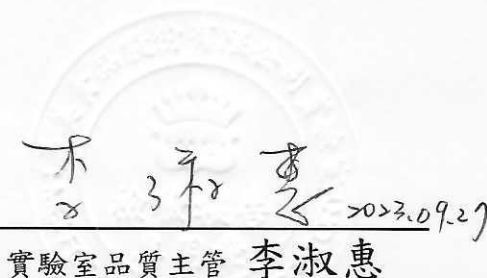 李淑惠 2023.09.27
實驗室品質主管 李淑惠